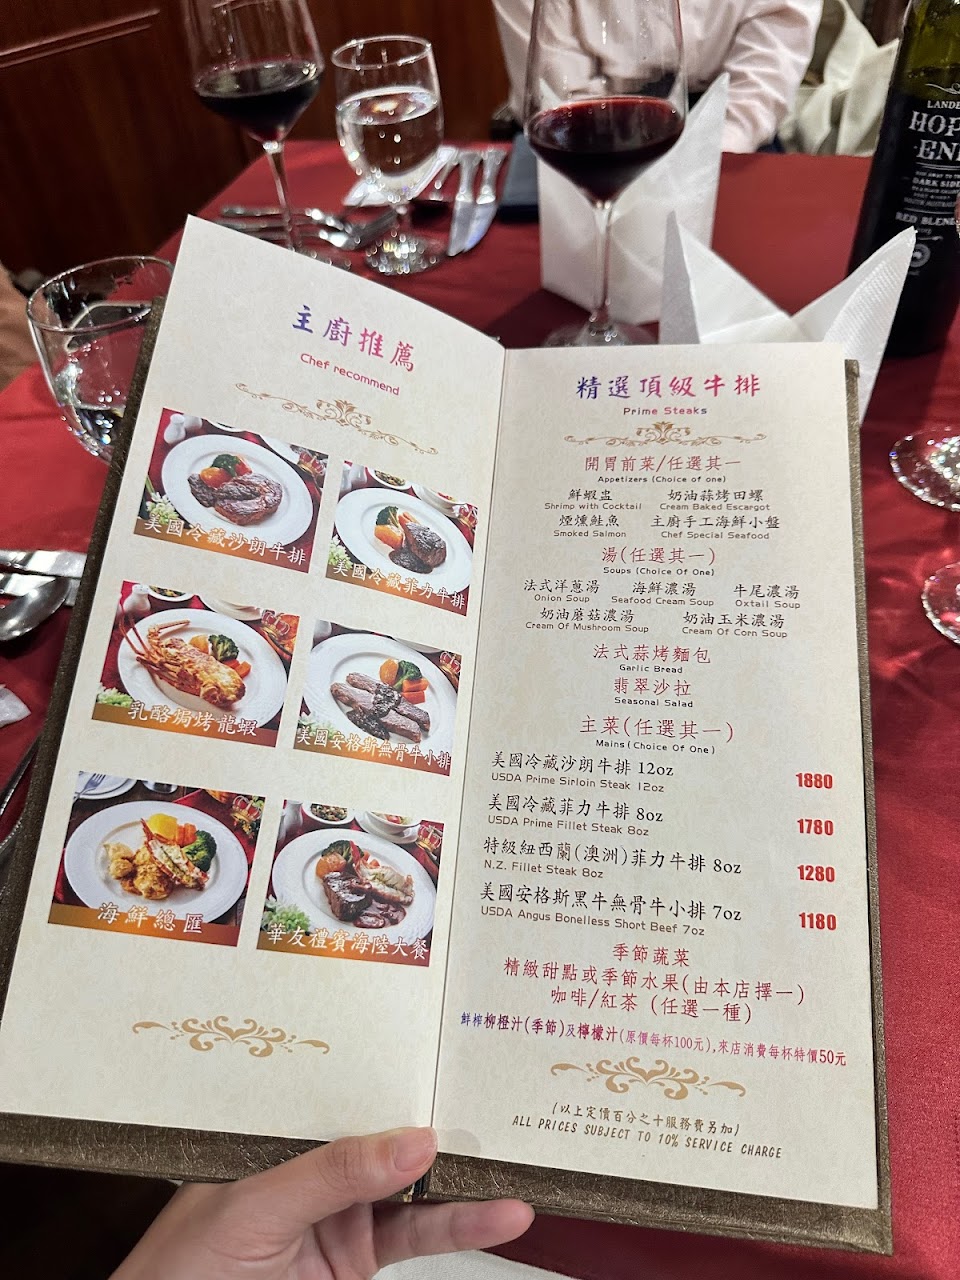 主廚推薦
Chef recommend
美國冷藏沙朗牛排
美國冷藏菲力牛排
乳酪焗烤龍蝦
美國安格斯無骨牛小排
海鮮總匯
華友禮賓海陸大餐
精選頂級牛排
Prime Steaks
開胃前菜/任選其一
Appetizers (Choice of one)
鮮蝦盅 奶油蒜烤田螺
Shrimp with Cocktail Cream Baked Escargot
煙燻鮭魚 主廚手工海鮮小盤
Smoked Salmon Chef Special Seafood
湯(任選其一)
Soups (Choice Of One)
法式洋蔥湯 海鮮濃湯 牛尾濃湯
Onion Soup Seafood Cream Soup Oxtail Soup
奶油蘑菇濃湯 奶油玉米濃湯
Cream Of Mushroom Soup Cream Of Corn Soup
法式蒜烤麵包
Garlic Bread
翡翠沙拉
Seasonal Salad
主菜(任選其一)
Mains (Choice Of One)
美國冷藏沙朗牛排 12oz 1880
USDA Prime Sirloin Steak 12oz
美國冷藏菲力牛排 8oz 1780
USDA Prime Fillet Steak 8oz
特級紐西蘭(澳洲)菲力牛排 8oz 1280
N.Z. Fillet Steak 8oz
美國安格斯黑牛無骨牛小排 7oz 1180
USDA Angus Bonelless Short Beef 7oz
季節蔬菜
精緻甜點或季節水果(由本店擇一)
咖啡/紅茶 (任選一種)
鮮榨柳橙汁(季節)及檸檬汁(原價每杯100元),來店消費每杯特價50元
(以上定價百分之十服務費另加)
ALL PRICES SUBJECT TO 10% SERVICE CHARGE
LANDE
HOP
EN
DARK SIDE
SOUTH AUSTRALIA
RED BLEN